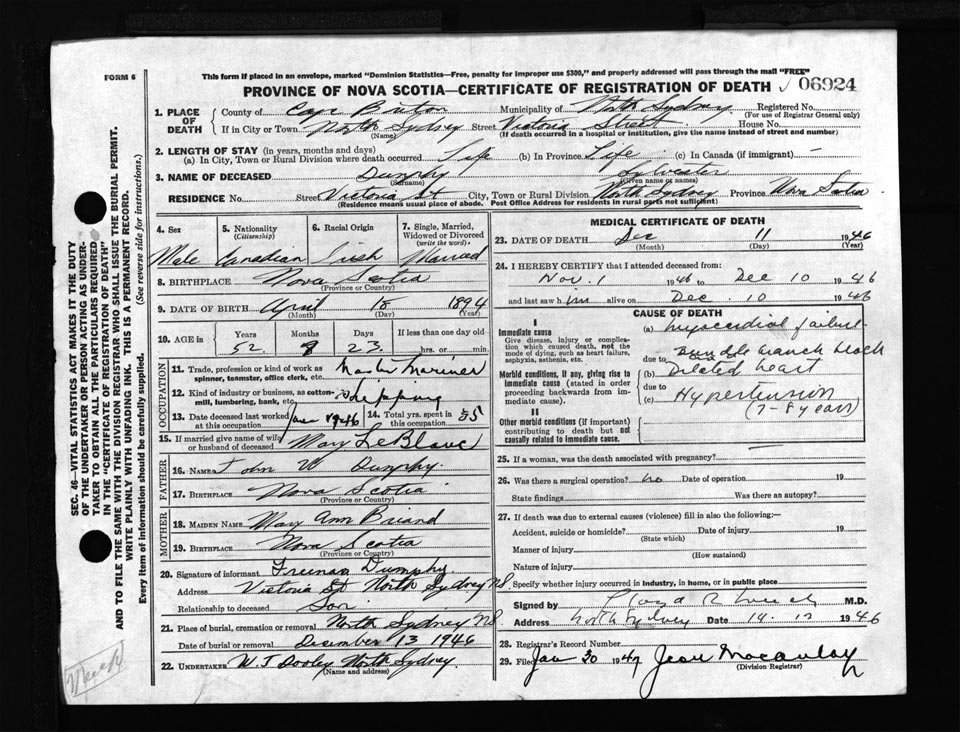 FORM 6
This form if placed in an envelope, marked "Dominion Statistics—Free, penalty for improper use $300," and properly addressed will pass through the mail "FREE"
PROVINCE OF NOVA SCOTIA—CERTIFICATE OF REGISTRATION OF DEATH 06924
1. PLACE OF DEATH
County of Cape Breton Municipality of North Sydney Registered No.
(For use of Registrar General only)
If in City or Town North Sydney Street Victoria Street House No.
(Name) (If death occurred in a hospital or institution, give the name instead of street and number)
2. LENGTH OF STAY (in years, months and days)
(a) In City, Town or Rural Division where death occurred Life (b) In Province Life (c) In Canada (if immigrant) —
3. NAME OF DECEASED Dunphy Sylvester
(Surname) (Given name or names)
RESIDENCE No. Street Victoria St City, Town or Rural Division North Sydney Province Nova Scotia
(Residence means usual place of abode. Post Office Address for residents in rural parts not sufficient)
SEC. 46—VITAL STATISTICS ACT MAKES IT THE DUTY
OF THE UNDERTAKER OR PERSON ACTING AS UNDER-
TAKER TO OBTAIN ALL THE PARTICULARS REQUIRED
IN THE "CERTIFICATE OF REGISTRATION OF DEATH"
AND TO FILE THE SAME WITH THE DIVISION REGISTRAR WHO SHALL ISSUE THE BURIAL PERMIT.
WRITE PLAINLY WITH UNFADING INK. THIS IS A PERMANENT RECORD.
Every item of information should be carefully supplied. (See reverse side for instructions.)
4. Sex 5. Nationality (Citizenship) 6. Racial Origin 7. Single, Married, Widowed or Divorced (write the word)
Male Canadian Irish Married
8. BIRTHPLACE Nova Scotia
(Province or Country)
9. DATE OF BIRTH April 18 1894
(Month) (Day) (Year)
10. AGE in Years Months Days If less than one day old
52 23 hrs. or min.
OCCUPATION
11. Trade, profession or kind of work as Master Mariner
spinner, teamster, office clerk, etc.
12. Kind of industry or business, as cotton-mill, lumbering, bank, etc. Shipping
13. Date deceased last worked at this occupation Jan 1946 14. Total yrs. spent in this occupation 35
15. If married give name of wife or husband of deceased Mary LeBlanc
FATHER
16. NAME John W Dunphy
17. BIRTHPLACE Nova Scotia
(Province or Country)
MOTHER
18. MAIDEN NAME Mary Ann Briand
19. BIRTHPLACE Nova Scotia
(Province or Country)
20. Signature of informant Freeman Dumphy
Address Victoria St North Sydney N.S.
Relationship to deceased Son
21. Place of burial, cremation or removal North Sydney NS
Date of burial or removal December 13 1946
22. UNDERTAKER W. J Dooley North Sydney
(Name and address)
MEDICAL CERTIFICATE OF DEATH
23. DATE OF DEATH Dec 11 1946
(Month) (Day) (Year)
24. I HEREBY CERTIFY that I attended deceased from:
Nov. 1 1946 to Dec 10 1946
and last saw him alive on Dec. 10 1946
CAUSE OF DEATH
I
Immediate cause (a) Myocardial failure
Give disease, injury or complication which caused death, not the mode of dying, such as heart failure, asphyxia, asthenia, etc.
due to Bundle branch block
Morbid conditions, if any, giving rise to immediate cause (stated in order proceeding backwards from immediate cause).
(b) Dilated heart
due to
(c) Hypertension
(7-8 years)
II
Other morbid conditions (if important) contributing to death but not causally related to immediate cause.
25. If a woman, was the death associated with pregnancy?
26. Was there a surgical operation? no Date of operation 19
State findings Was there an autopsy?
27. If death was due to external causes (violence) fill in also the following:—
Accident, suicide or homicide? Date of injury 19
(State which)
Manner of injury
(How sustained)
Nature of injury
Specify whether injury occurred in industry, in home, or in public place
Signed by Floyd R M.D.
Address North Sydney Date 14. 12 1946
28. Registrar's Record Number
29. Filed Jan 20 1947 Jean Macaulay
(Division Registrar)